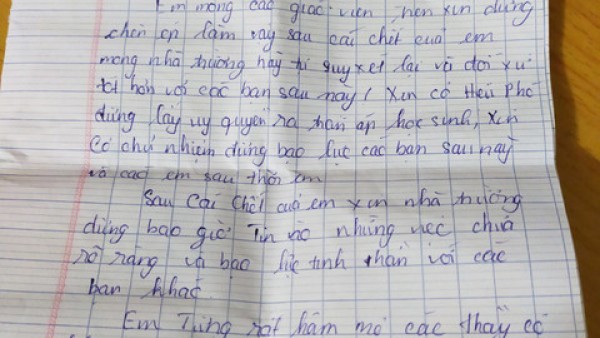 Em mong các giáo viên nên xin đừng
chèn ép lầm vay sau cái chết của em
mong nhà trường hãy tự suy xét lại và đối xử
tốt hơn với các bạn sau này! Xin cô hiệu phó
đừng lấy uy quyền ra hăn áp học sinh, Xin
cô chủ nhiệm đừng bạo lực các bạn sau này
và các em sau thời em
Sau cái chết của em xin nhà trường
đừng bao giờ Tin vào những việc chưa
rõ ràng và bạo lực tinh thần với các
bạn khác.
Em Từng rất hâm mộ các thầy cô